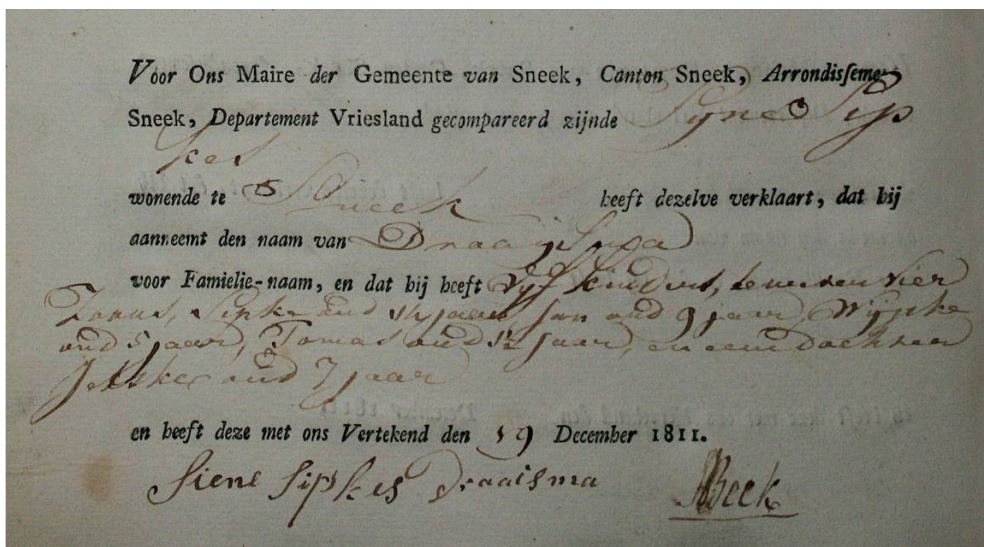 Voor Ons Maire der Gemeente van Sneek, Canton Sneek, Arrondissemen
Sneek, Departement Vriesland gecompareerd zijnde Sijne Sip
kes
wonende te Sneek heeft dezelve verklaart, dat hij
aanneemt den naam van Draaijsma
voor Famielie-naam, en dat hij heeft Vijf kinders, te weten vier
Zoons, Sipke oud jaar Jan oud 9 jaar, Wijpke
oud 5 jaar, Tomas oud jaar, en eene dochter
Jelske oud 7 jaar
en heeft deze met ons Vertekend den 19 December 1811.
Siene Sipkes Draaisma Beek